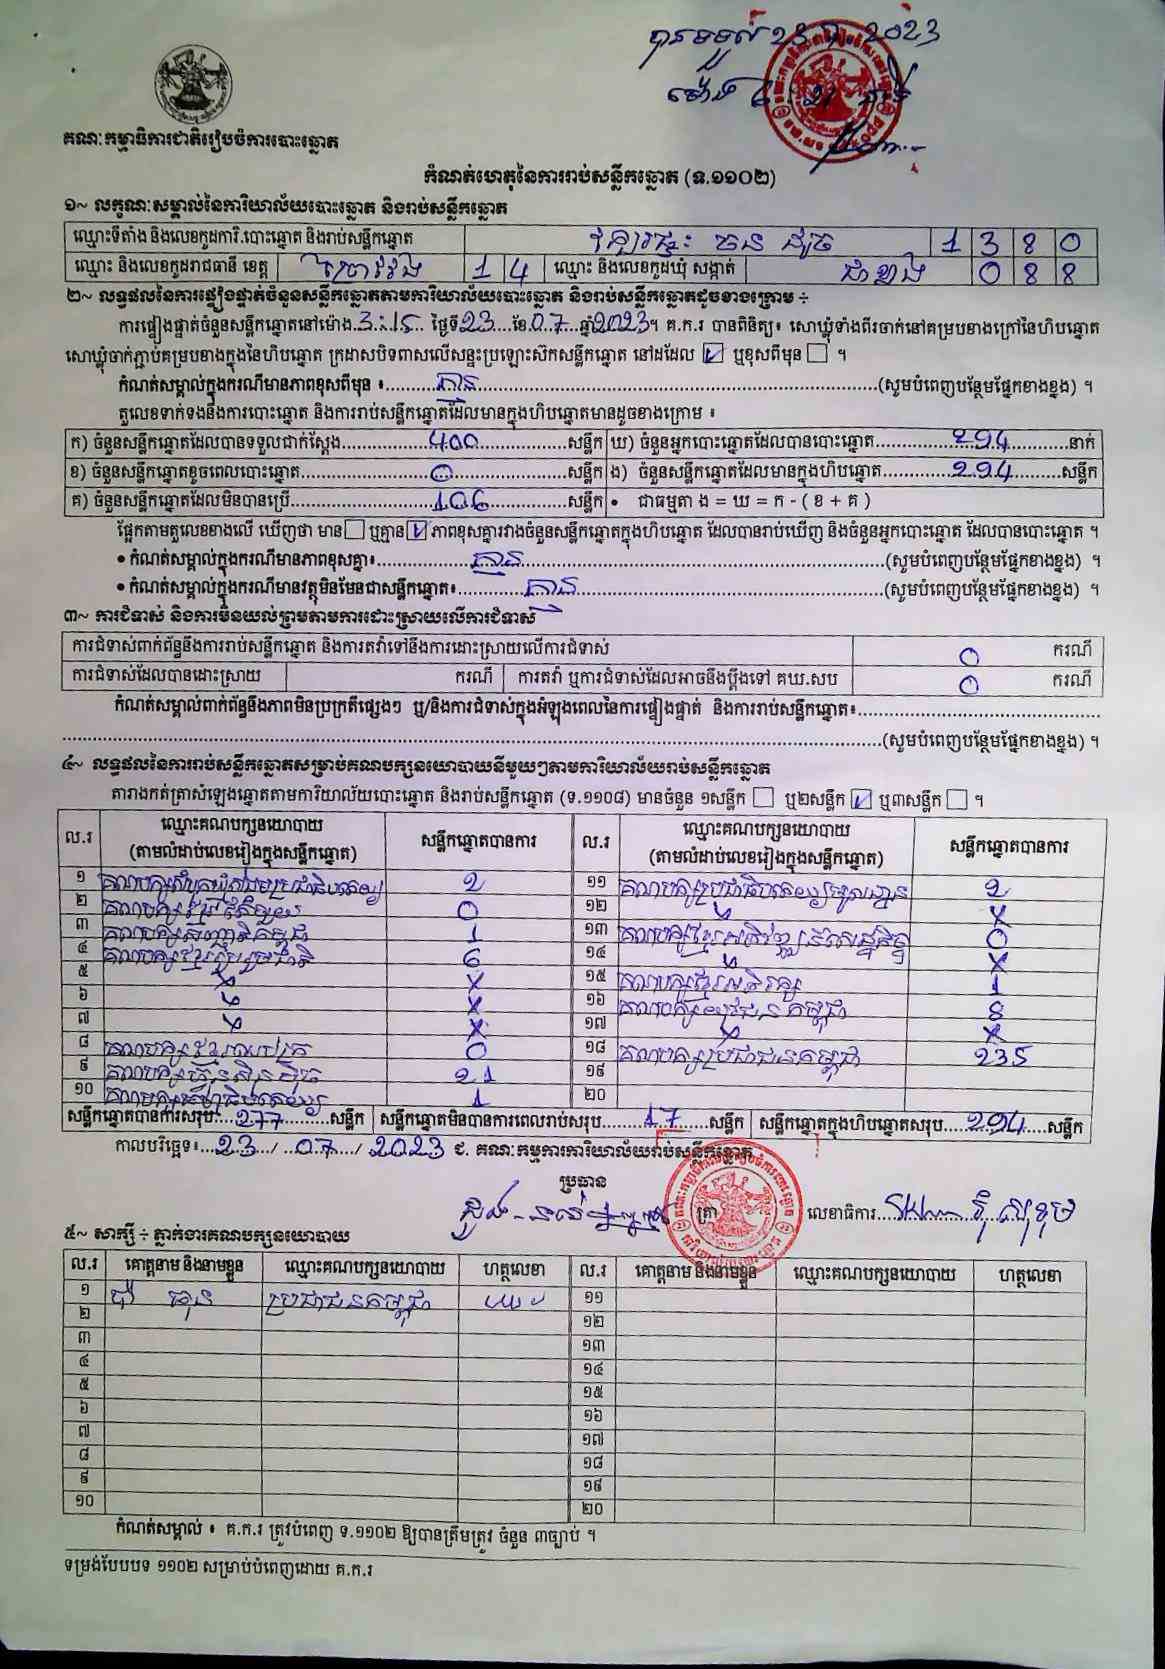 បានទទួល 23 2023
ម៉ោង
គណៈកម្មាធិការជាតិរៀបចំការបោះឆ្នោត
កំណត់ហេតុនៃការរាប់សន្លឹកឆ្នោត (ទ.១១០២)
១~ លក្ខណៈសម្គាល់នៃការិយាល័យបោះឆ្នោត និងរាប់សន្លឹកឆ្នោត
ឈ្មោះទីតាំង និងលេខកូដការិ.បោះឆ្នោត និងរាប់សន្លឹកឆ្នោត 1 3 8 0
ឈ្មោះ និងលេខកូដរាជធានី ខេត្ត ព្រៃវែង 1 4 ឈ្មោះ និងលេខកូដឃុំ សង្កាត់ 0 8 8
២~ លទ្ធផលនៃការផ្ទៀងផ្ទាត់ចំនួនសន្លឹកឆ្នោតតាមការិយាល័យបោះឆ្នោត និងរាប់សន្លឹកឆ្នោតដូចខាងក្រោម ÷
ការផ្ទៀងផ្ទាត់ចំនួនសន្លឹកឆ្នោតនៅម៉ោង 3:15 ថ្ងៃទី 23 ខែ 07 ឆ្នាំ 2023។ គ.ក.រ បានពិនិត្យ៖ សោឃ្លុំទាំងពីរចាក់នៅគម្របខាងក្រៅនៃហិបឆ្នោត
សោឃ្លុំចាក់ភ្ជាប់គម្របខាងក្នុងនៃហិបឆ្នោត ក្រដាសបិទពាសលើសន្ទះប្រឡោះស៊កសន្លឹកឆ្នោត នៅដដែល ☑ ឬខុសពីមុន ☐ ។
កំណត់សម្គាល់ក្នុងករណីមានភាពខុសពីមុន ៖ គ្មាន (សូមបំពេញបន្ថែមផ្នែកខាងខ្នង) ។
តួលេខទាក់ទងនឹងការបោះឆ្នោត និងការរាប់សន្លឹកឆ្នោតដែលមានក្នុងហិបឆ្នោតមានដូចខាងក្រោម ៖
ក) ចំនួនសន្លឹកឆ្នោតដែលបានទទួលជាក់ស្តែង 400 សន្លឹក ឃ) ចំនួនអ្នកបោះឆ្នោតដែលបានបោះឆ្នោត 294 នាក់
ខ) ចំនួនសន្លឹកឆ្នោតខូចពេលបោះឆ្នោត 0 សន្លឹក ង) ចំនួនសន្លឹកឆ្នោតដែលមានក្នុងហិបឆ្នោត 294 សន្លឹក
គ) ចំនួនសន្លឹកឆ្នោតដែលមិនបានប្រើ 106 សន្លឹក • ជាធម្មតា ង = ឃ = ក - ( ខ + គ )
ផ្អែកតាមតួលេខខាងលើ ឃើញថា មាន ☐ ឬគ្មាន ☑ ភាពខុសគ្នារវាងចំនួនសន្លឹកឆ្នោតក្នុងហិបឆ្នោត ដែលបានរាប់ឃើញ និងចំនួនអ្នកបោះឆ្នោត ដែលបានបោះឆ្នោត ។
• កំណត់សម្គាល់ក្នុងករណីមានភាពខុសគ្នា៖ គ្មាន (សូមបំពេញបន្ថែមផ្នែកខាងខ្នង) ។
• កំណត់សម្គាល់ក្នុងករណីមានវត្ថុមិនមែនជាសន្លឹកឆ្នោត៖ គ្មាន (សូមបំពេញបន្ថែមផ្នែកខាងខ្នង) ។
៣~ ការជំទាស់ និងការមិនយល់ព្រមតាមការដោះស្រាយលើការជំទាស់
ការជំទាស់ពាក់ព័ន្ធនឹងការរាប់សន្លឹកឆ្នោត និងការតវ៉ាទៅនឹងការដោះស្រាយលើការជំទាស់ 0 ករណី
ការជំទាស់ដែលបានដោះស្រាយ ករណី ការតវ៉ា ឬការជំទាស់ដែលអាចនឹងប្តឹងទៅ គឃ.សប 0 ករណី
កំណត់សម្គាល់ពាក់ព័ន្ធនឹងភាពមិនប្រក្រតីផ្សេងៗ ឬ/និងការជំទាស់ក្នុងអំឡុងពេលនៃការផ្ទៀងផ្ទាត់ និងការរាប់សន្លឹកឆ្នោត៖
(សូមបំពេញបន្ថែមផ្នែកខាងខ្នង) ។
៤~ លទ្ធផលនៃការរាប់សន្លឹកឆ្នោតសម្រាប់គណបក្សនយោបាយនីមួយៗតាមការិយាល័យរាប់សន្លឹកឆ្នោត
តារាងកត់ត្រាសំឡេងឆ្នោតតាមការិយាល័យបោះឆ្នោត និងរាប់សន្លឹកឆ្នោត (ទ.១១០៨) មានចំនួន ១សន្លឹក ☐ ឬ២សន្លឹក ☑ ឬ៣សន្លឹក ☐ ។
ល.រ ឈ្មោះគណបក្សនយោបាយ (តាមលំដាប់លេខរៀងក្នុងសន្លឹកឆ្នោត) សន្លឹកឆ្នោតបានការ ល.រ ឈ្មោះគណបក្សនយោបាយ (តាមលំដាប់លេខរៀងក្នុងសន្លឹកឆ្នោត) សន្លឹកឆ្នោតបានការ
១ គណបក្សសំបុកឃ្មុំសង្គមប្រជាធិបតេយ្យ 2 ១១ គណបក្សប្រជាធិបតេយ្យមូលដ្ឋាន 2
២ គណបក្សខ្មែរតែមួយ 0 ១២ X
៣ គណបក្សសញ្ជាតិកម្ពុជា 1 ១៣ គណបក្សខ្មែរអភិវឌ្ឍន៍សេដ្ឋកិច្ច 0
៤ គណបក្សខ្មែររួបរួមជាតិ 6 ១៤ X
៥ X ១៥ គណបក្សខ្មែរអភិរក្ស 1
៦ X ១៦ គណបក្សយុវជនកម្ពុជា 8
៧ X ១៧ X
៨ គណបក្ស 0 ១៨ គណបក្សប្រជាជនកម្ពុជា 235
៩ គណបក្សហ្វ៊ុនស៊ិនប៉ិច 21 ១៩
១០ គណបក្ស 1 ២០
សន្លឹកឆ្នោតបានការសរុប 277 សន្លឹក សន្លឹកឆ្នោតមិនបានការពេលរាប់សរុប 17 សន្លឹក សន្លឹកឆ្នោតក្នុងហិបឆ្នោតសរុប 294 សន្លឹក
កាលបរិច្ឆេទ៖ 23 / 07 / 2023 ជ. គណៈកម្មការការិយាល័យរាប់សន្លឹកឆ្នោត
ប្រធាន
ត្រា លេខាធិការ
៥~ សាក្សី ÷ ភ្នាក់ងារគណបក្សនយោបាយ
ល.រ គោត្តនាម និងនាមខ្លួន ឈ្មោះគណបក្សនយោបាយ ហត្ថលេខា ល.រ គោត្តនាម និងនាមខ្លួន ឈ្មោះគណបក្សនយោបាយ ហត្ថលេខា
១ ប្រជាជនកម្ពុជា ១១
២ ១២
៣ ១៣
៤ ១៤
៥ ១៥
៦ ១៦
៧ ១៧
៨ ១៨
៩ ១៩
១០ ២០
កំណត់សម្គាល់ ៖ គ.ក.រ ត្រូវបំពេញ ទ.១១០២ ឱ្យបានត្រឹមត្រូវ ចំនួន ៣ច្បាប់ ។
ទម្រង់បែបបទ ១១០២ សម្រាប់បំពេញដោយ គ.ក.រ